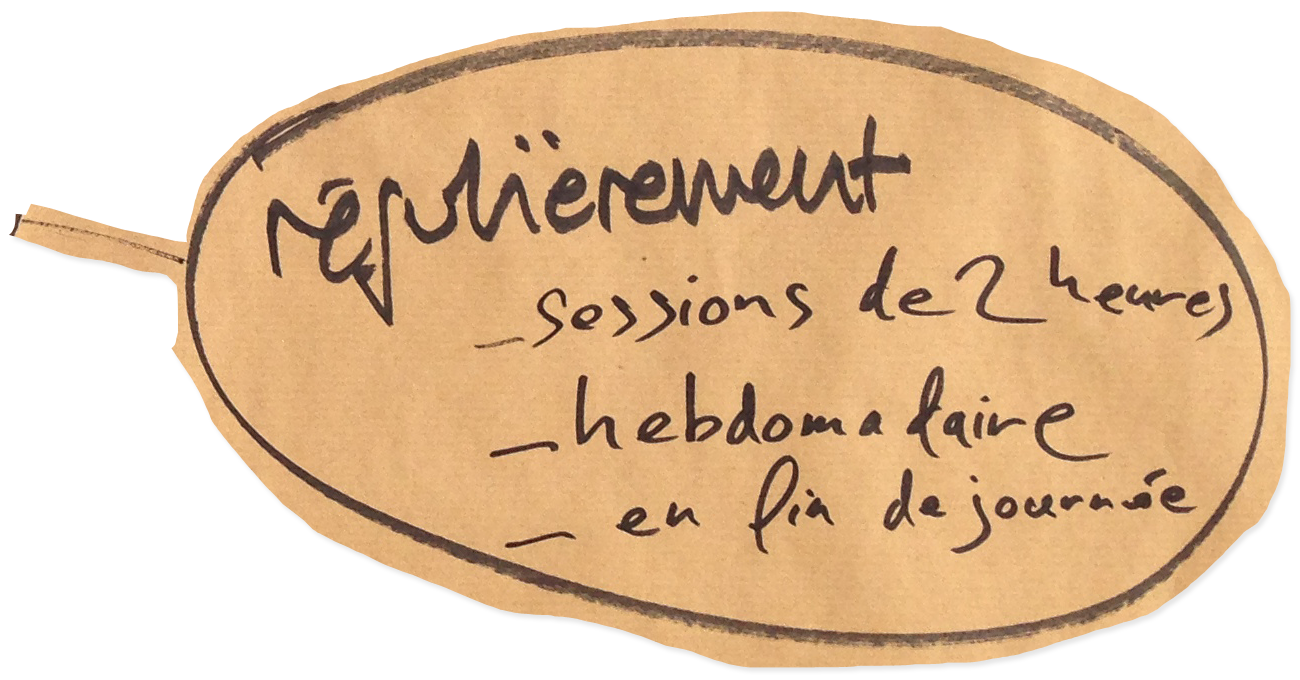 régulièrement
_sessions de 2 heures
_hebdomadaire
_ en fin de journée